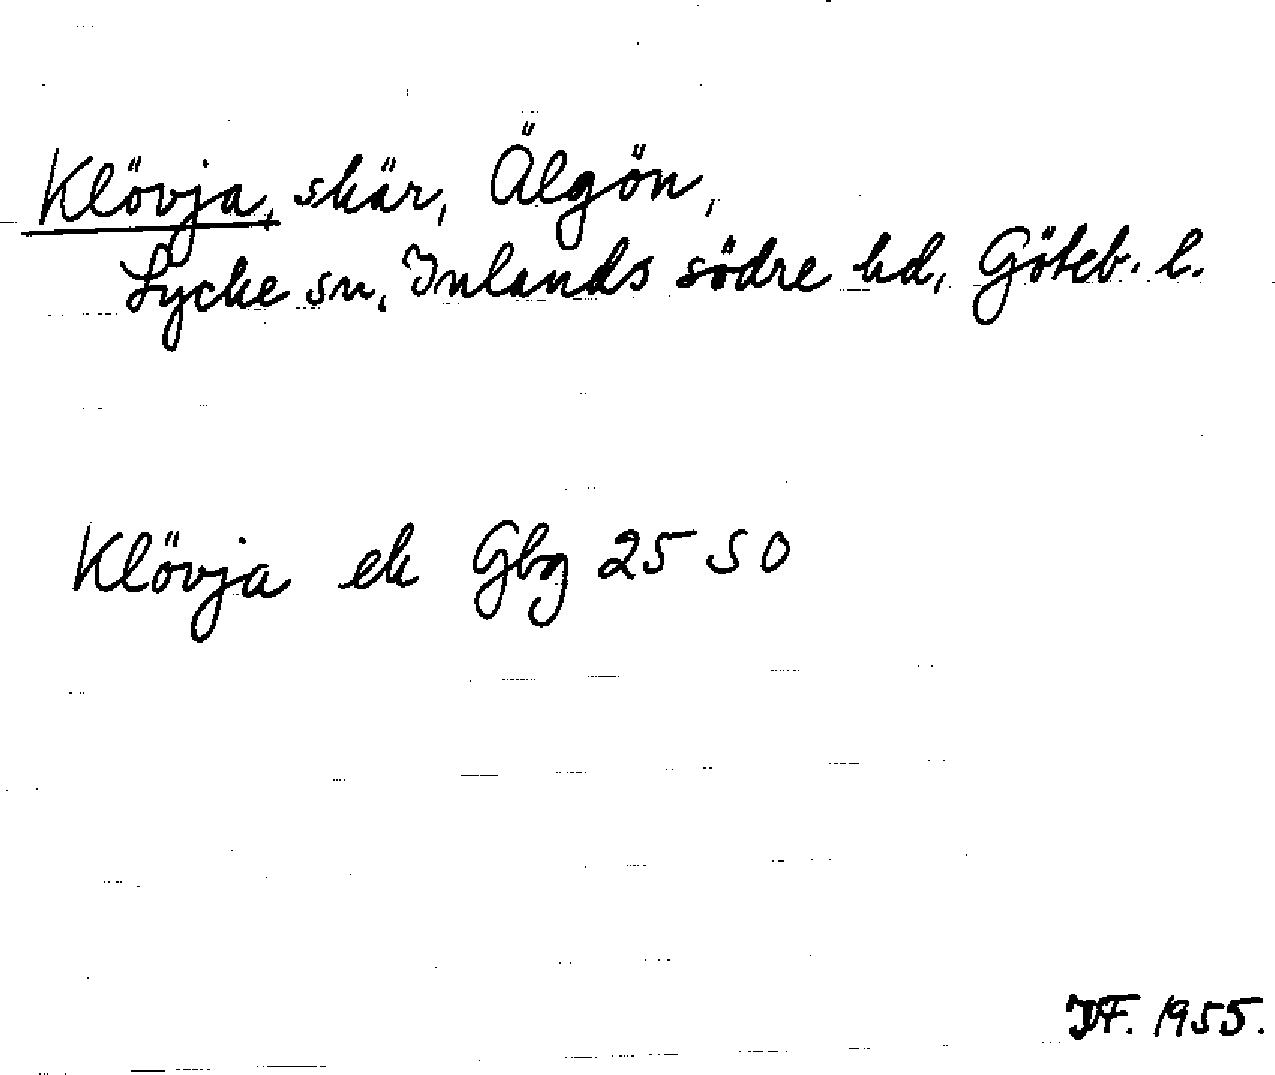 Klövja, skär, Älgön,
Lycke sn, Inlands södre hd, Göteb. l.
Klövja ek Gbg 25 SO
1955.